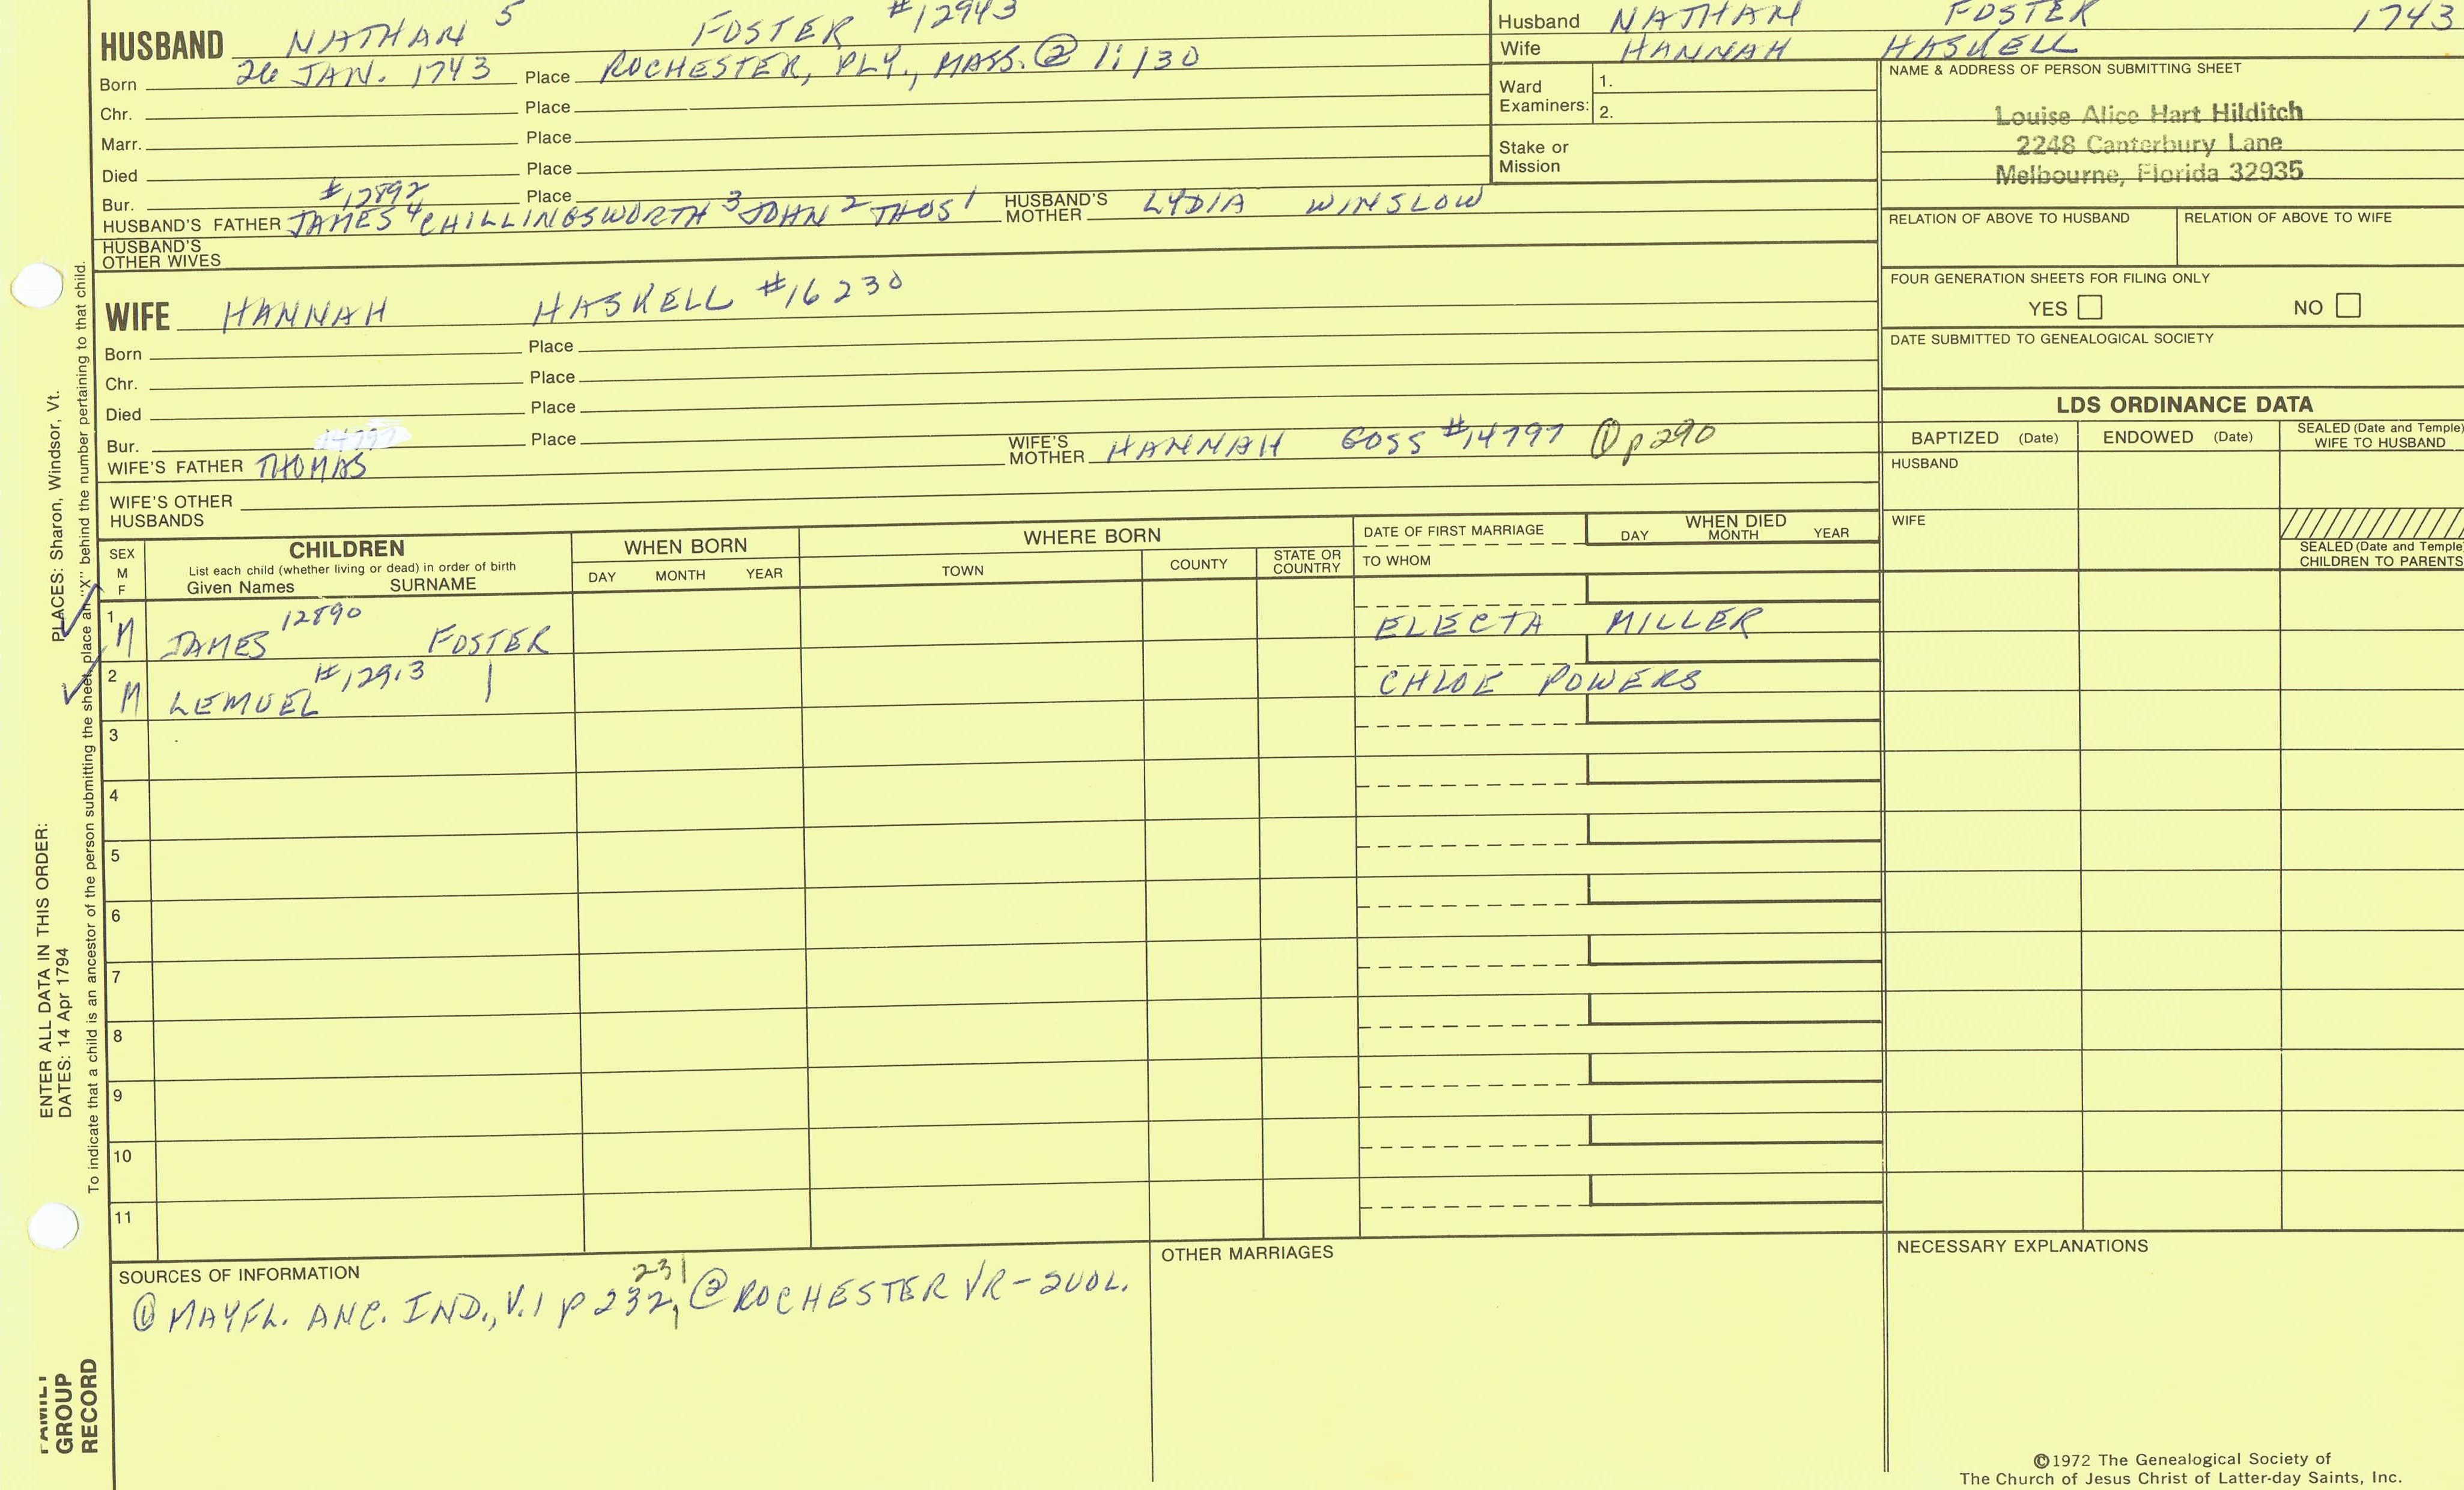 HUSBAND NATHAN 5 FOSTER #12943
Born 26 JAN. 1743 Place ROCHESTER, PLY., MASS. ② 1:130
Chr. Place
Marr. Place
Died Place
Bur. Place
#12892
HUSBAND'S FATHER JAMES 4 CHILLINGSWORTH 3 JOHN 2 THOS 1 HUSBAND'S MOTHER LYDIA WINSLOW
HUSBAND'S OTHER WIVES
WIFE HANNAH HASKELL #16230
Born Place
Chr. Place
Died Place
Bur. 14797 Place
WIFE'S FATHER THOMAS WIFE'S MOTHER HANNAH GOSS #14797 ① p290
WIFE'S OTHER HUSBANDS
Husband NATHAN FOSTER 1743
Wife HANNAH HASKELL
Ward Examiners: 1.
2.
Stake or Mission
NAME & ADDRESS OF PERSON SUBMITTING SHEET
Louise Alice Hart Hilditch
2248 Canterbury Lane
Melbourne, Florida 32935
RELATION OF ABOVE TO HUSBAND RELATION OF ABOVE TO WIFE
FOUR GENERATION SHEETS FOR FILING ONLY
YES NO
DATE SUBMITTED TO GENEALOGICAL SOCIETY
LDS ORDINANCE DATA
BAPTIZED (Date) ENDOWED (Date) SEALED (Date and Temple) WIFE TO HUSBAND
HUSBAND
WIFE
SEALED (Date and Temple) CHILDREN TO PARENTS
SEX M F
CHILDREN
List each child (whether living or dead) in order of birth
Given Names SURNAME
WHEN BORN
DAY MONTH YEAR
WHERE BORN
TOWN COUNTY STATE OR COUNTRY
DATE OF FIRST MARRIAGE
TO WHOM
WHEN DIED
DAY MONTH YEAR
1 M JAMES 12890 FOSTER ELECTA MILLER
2 M LEMUEL #12913 | CHLOE POWERS
3
4
5
6
7
8
9
10
11
SOURCES OF INFORMATION
231
① MAYFL. ANC. IND., V.1 p 232, ② ROCHESTER VR - 2VOL.
OTHER MARRIAGES
NECESSARY EXPLANATIONS
©1972 The Genealogical Society of
The Church of Jesus Christ of Latter-day Saints, Inc.
ENTER ALL DATA IN THIS ORDER:
DATES: 14 Apr 1794 PLACES: Sharon, Windsor, Vt.
To indicate that a child is an ancestor of the person submitting the sheet, place an "X" behind the number pertaining to that child.
FAMILY
GROUP
RECORD